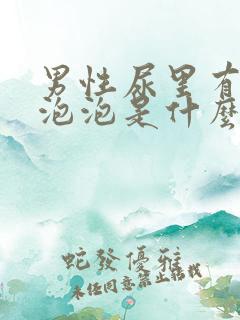 男性尿里有
泡泡是什麼
蛇發優雅
未经同意禁止转载